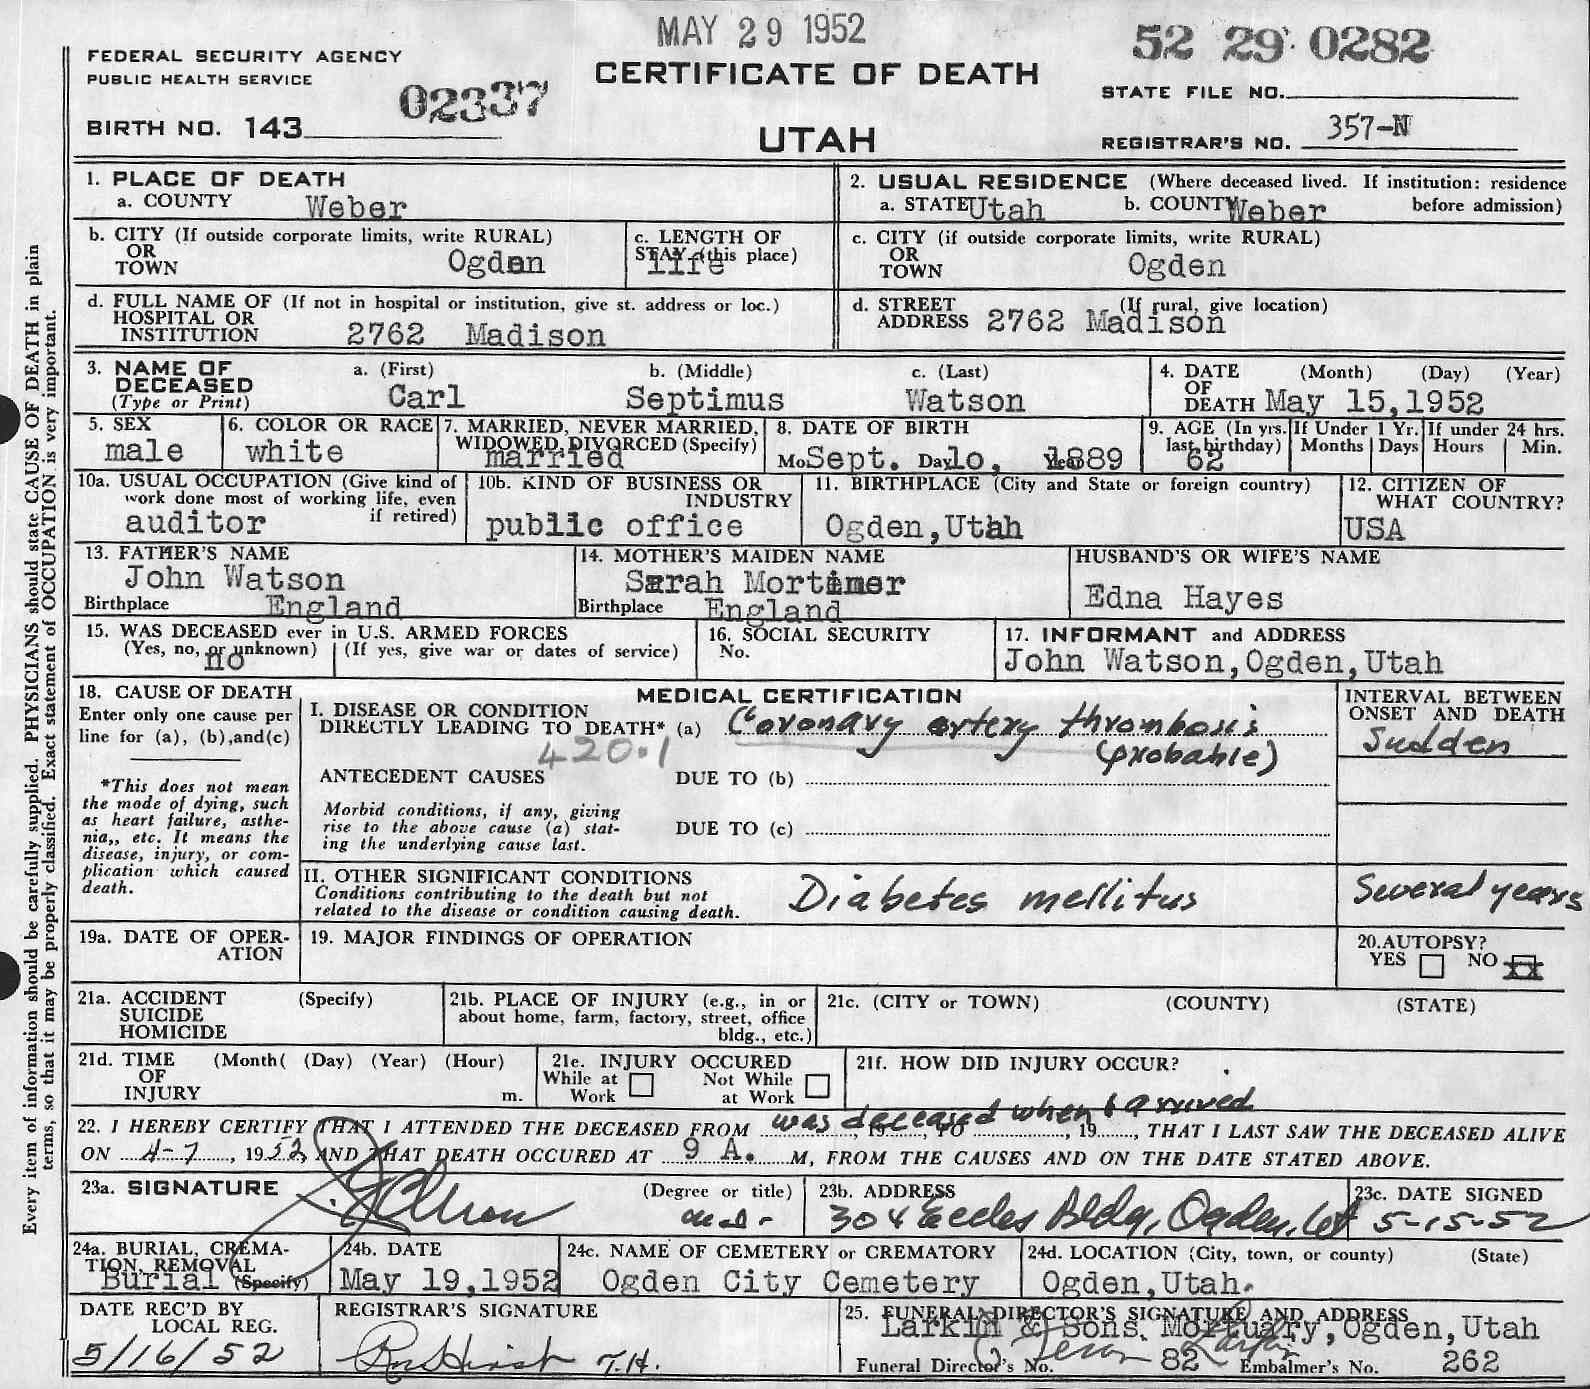 MAY 29 1952
52 29 0282
FEDERAL SECURITY AGENCY
PUBLIC HEALTH SERVICE
CERTIFICATE OF DEATH
STATE FILE NO.
02337
BIRTH NO. 143
UTAH
REGISTRAR'S NO. 357-N
Every item of information should be carefully supplied. PHYSICIANS should state CAUSE OF DEATH in plain
terms, so that it may be properly classified. Exact statement of OCCUPATION is very important.
1. PLACE OF DEATH
a. COUNTY Weber
2. USUAL RESIDENCE (Where deceased lived. If institution: residence
a. STATE Utah b. COUNTY Weber before admission)
b. CITY (If outside corporate limits, write RURAL)
OR
TOWN Ogden
c. LENGTH OF
STAY (this place)
life
c. CITY (if outside corporate limits, write RURAL)
OR
TOWN Ogden
d. FULL NAME OF (If not in hospital or institution, give st. address or loc.)
HOSPITAL OR
INSTITUTION 2762 Madison
d. STREET (If rural, give location)
ADDRESS 2762 Madison
3. NAME OF
DECEASED
(Type or Print)
a. (First) b. (Middle) c. (Last)
Carl Septimus Watson
4. DATE (Month) (Day) (Year)
OF
DEATH May 15,1952
5. SEX
male
6. COLOR OR RACE
white
7. MARRIED, NEVER MARRIED,
WIDOWED, DIVORCED (Specify)
married
8. DATE OF BIRTH
Mo. Sept. Day 10, Year 1889
9. AGE (In yrs. last birthday)
62
If Under 1 Yr. Months Days
If under 24 hrs. Hours Min.
10a. USUAL OCCUPATION (Give kind of
work done most of working life, even
if retired)
auditor
10b. KIND OF BUSINESS OR
INDUSTRY
public office
11. BIRTHPLACE (City and State or foreign country)
Ogden,Utah
12. CITIZEN OF
WHAT COUNTRY?
USA
13. FATHER'S NAME
John Watson
Birthplace England
14. MOTHER'S MAIDEN NAME
Sarah Mortimer
Birthplace England
HUSBAND'S OR WIFE'S NAME
Edna Hayes
15. WAS DECEASED ever in U.S. ARMED FORCES
(Yes, no, or unknown) (If yes, give war or dates of service)
no
16. SOCIAL SECURITY
No.
17. INFORMANT and ADDRESS
John Watson,Ogden,Utah
18. CAUSE OF DEATH
Enter only one cause per
line for (a), (b),and(c)
*This does not mean
the mode of dying, such
as heart failure, asthe-
nia,, etc. It means the
disease, injury, or com-
plication which caused
death.
MEDICAL CERTIFICATION
I. DISEASE OR CONDITION
DIRECTLY LEADING TO DEATH* (a) Coronary artery thrombosis
(probable)
420.1
ANTECEDENT CAUSES DUE TO (b)
Morbid conditions, if any, giving
rise to the above cause (a) stat-
ing the underlying cause last.
DUE TO (c)
INTERVAL BETWEEN
ONSET AND DEATH
Sudden
II. OTHER SIGNIFICANT CONDITIONS
Conditions contributing to the death but not
related to the disease or condition causing death.
Diabetes mellitus
Several years
19a. DATE OF OPER-
ATION
19. MAJOR FINDINGS OF OPERATION
20.AUTOPSY?
YES NO XX
21a. ACCIDENT (Specify)
SUICIDE
HOMICIDE
21b. PLACE OF INJURY (e.g., in or
about home, farm, factory, street, office
bldg., etc.)
21c. (CITY or TOWN) (COUNTY) (STATE)
21d. TIME (Month( (Day) (Year) (Hour)
OF
INJURY m.
21e. INJURY OCCURED
While at Work Not While at Work
21f. HOW DID INJURY OCCUR?
was deceased when I arrived
22. I HEREBY CERTIFY THAT I ATTENDED THE DECEASED FROM , 19 , TO , 19 , THAT I LAST SAW THE DECEASED ALIVE
ON 4-7, 1952, AND THAT DEATH OCCURED AT 9 A. M, FROM THE CAUSES AND ON THE DATE STATED ABOVE.
23a. SIGNATURE (Degree or title)
m.d.
23b. ADDRESS
304 Eccles Bldg, Ogden, Ut
23c. DATE SIGNED
5-15-52
24a. BURIAL, CREMA-
TION, REMOVAL
Burial (Specify)
24b. DATE
May 19,1952
24c. NAME OF CEMETERY or CREMATORY
Ogden City Cemetery
24d. LOCATION (City, town, or county) (State)
Ogden,Utah.
DATE REC'D BY
LOCAL REG.
5/16/52
REGISTRAR'S SIGNATURE
T.H.
25. FUNERAL DIRECTOR'S SIGNATURE AND ADDRESS
Larkin & Sons Mortuary,Ogden,Utah
Funeral Director's No. 82 Embalmer's No. 262